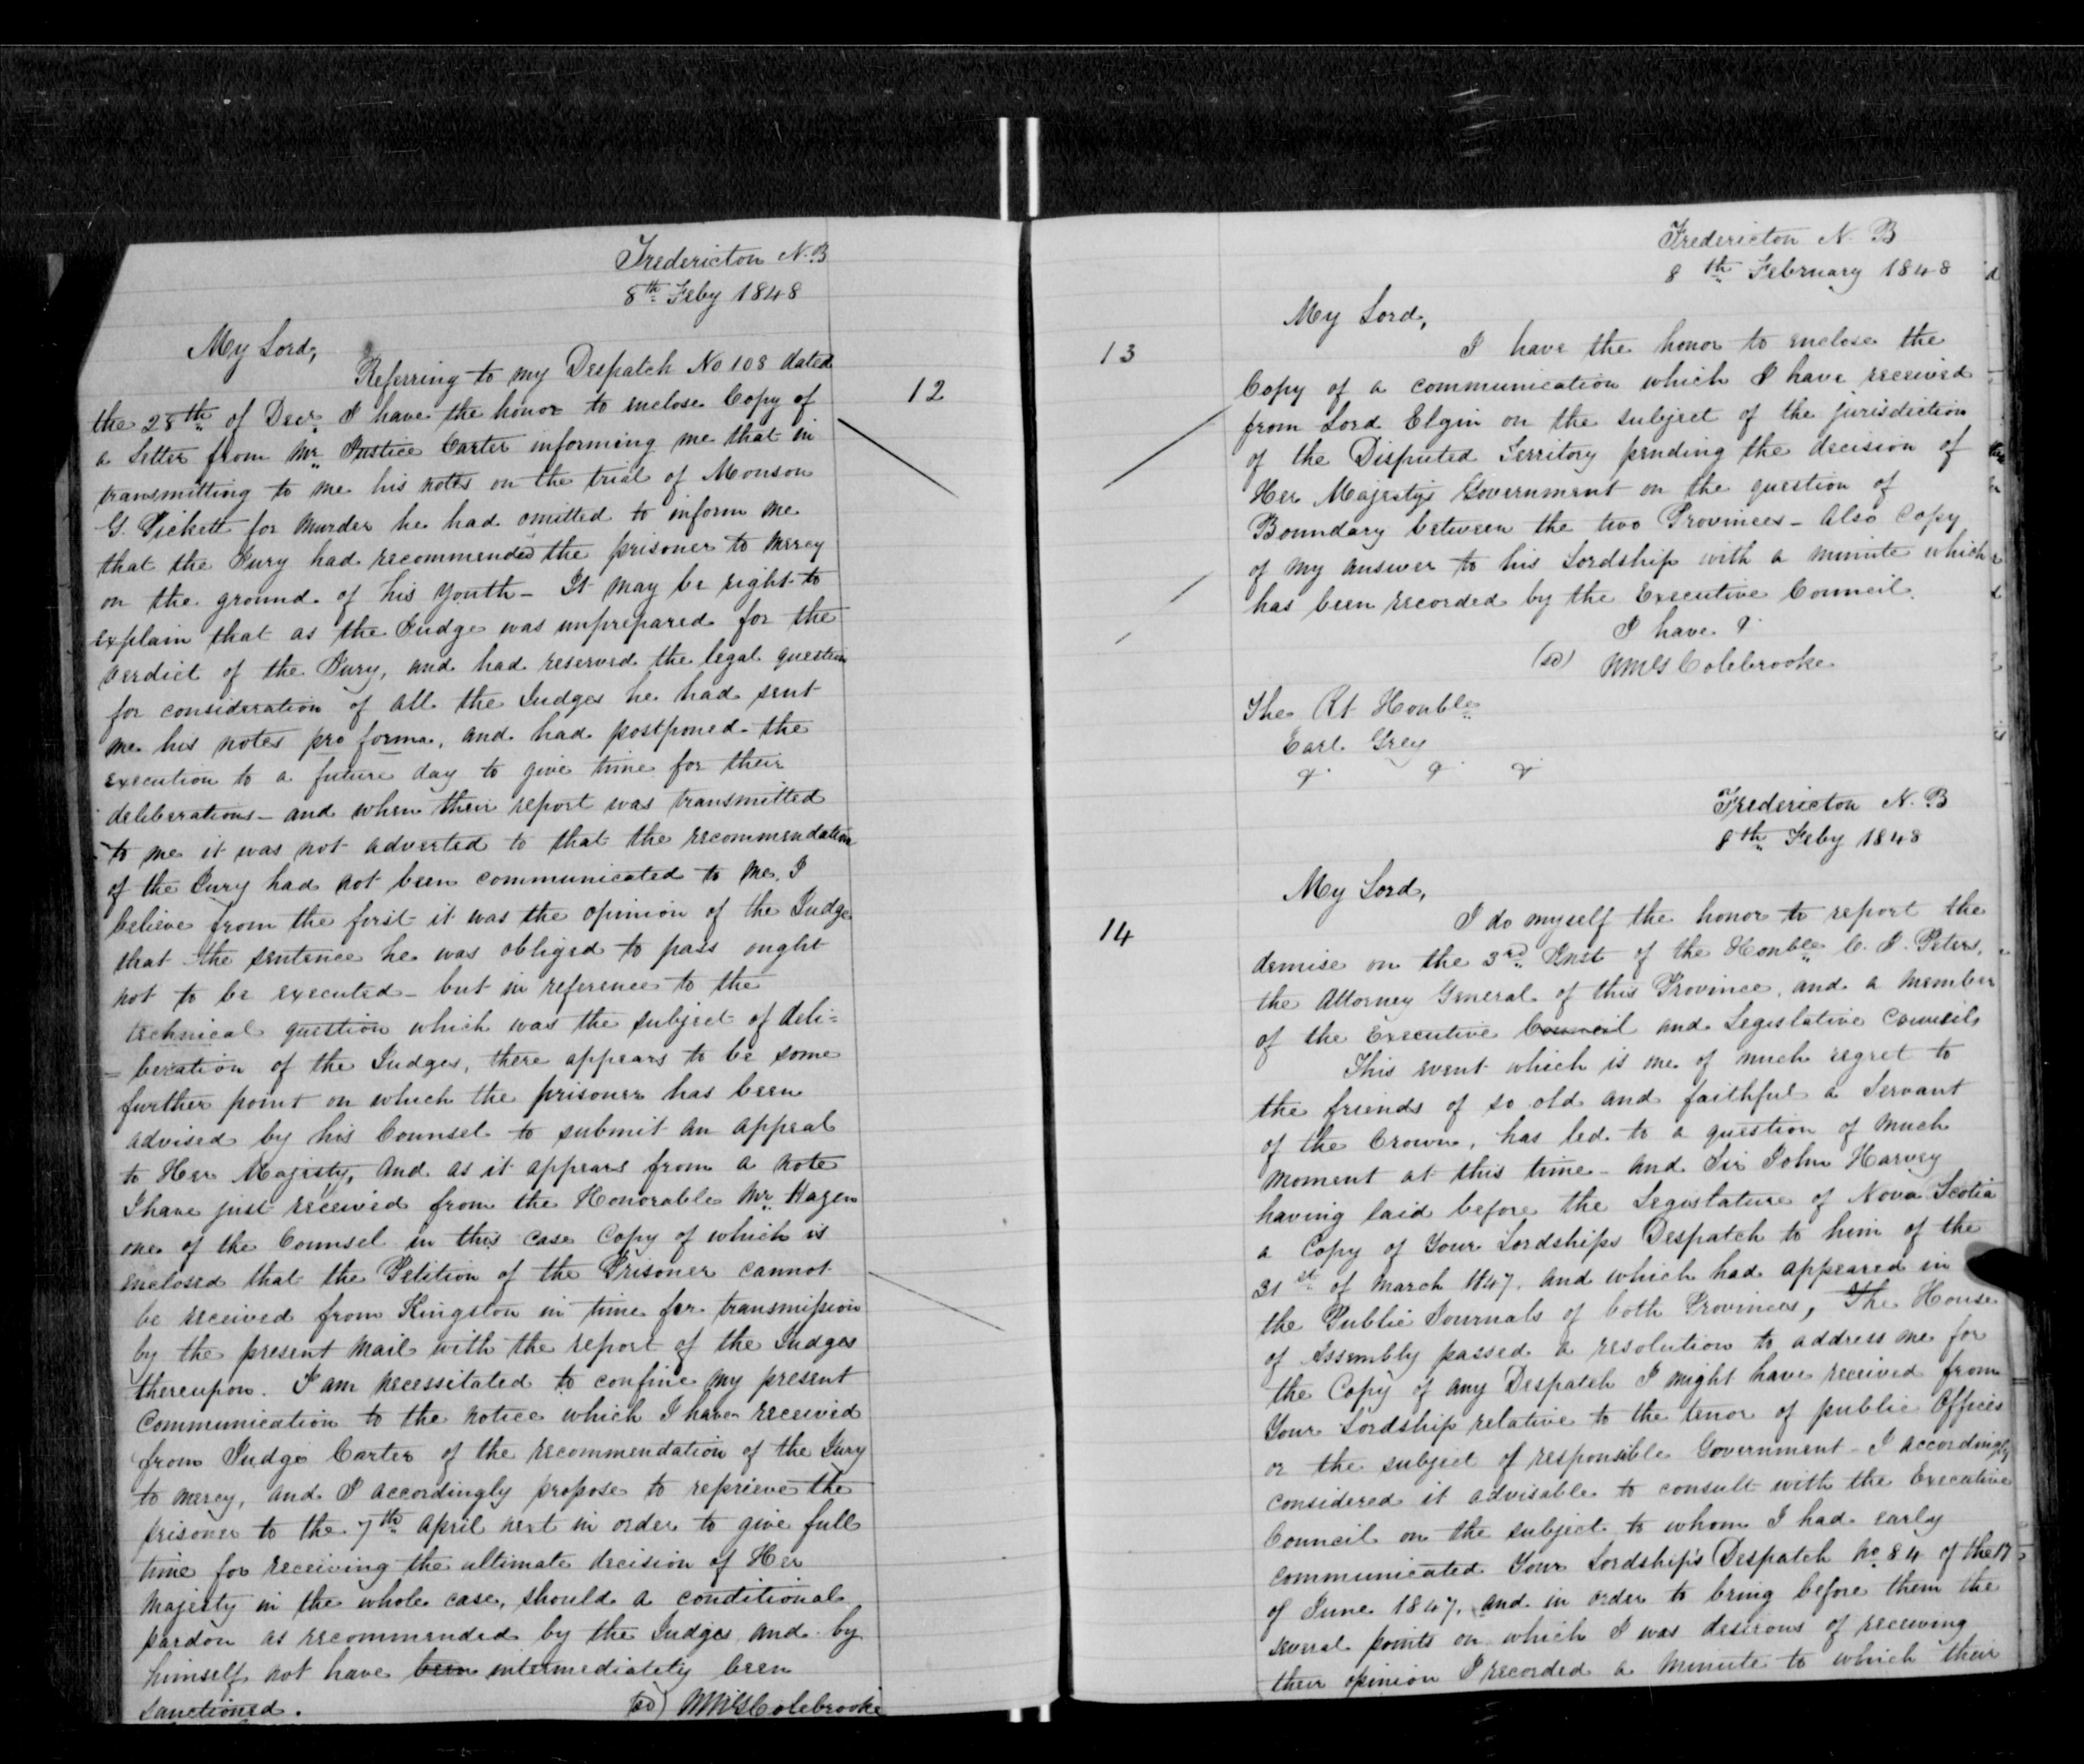 Fredericton N.B
8th Feby 1848
My Lord,
Referring to my Despatch No 108 dated
12
the 28th of Decr I have the honor to enclose Copy of
a Letter from Mr Justice Carter informing me that in
transmitting to me his notes on the trial of Monson
G. Pickett for Murder he had omitted to inform me
that the Jury had recommended the prisoner to Mercy
on the ground of his Youth - It may be right to
explain that as the Judge was unprepared for the
verdict of the Jury, and had reserved the legal question
for consideration of all the Judges he had sent
me his notes pro forma, and had postponed the
execution to a future day to give time for their
deliberations - and when their report was transmitted
to me it was not adverted to that the recommendation
of the Jury had not been communicated to me. I
believe from the first it was the opinion of the Judge
that the sentence he was obliged to pass ought
not to be executed - but in reference to the
technical question which was the subject of deli=
=beration of the Judges, there appears to be some
further point on which the prisoner has been
advised by his Counsel to submit an appeal
to Her Majesty, and as it appears from a note
I have just received from the Honorable Mr Hazen
one of the Counsel in this case Copy of which is
enclosed that the Petition of the Prisoner cannot
be received from Kingston in time for transmission
by the present Mail with the report of the Judges
thereupon. I am necessitated to confine my present
Communication to the notice which I have received
from Judge Carter of the recommendation of the Jury
to mercy, and I accordingly propose to reprieve the
prisoner to the 7th April next in order to give full
time for receiving the ultimate decision of Her
Majesty in the whole case, should a conditional
pardon as recommended by the Judges and by
himself not have been intermediately been
sanctioned.
(sd) WMGColebrooke
Fredericton N. B
8th February 1848
My Lord,
13
I have the honor to enclose the
Copy of a communication which I have received
from Lord Elgin on the subject of the jurisdiction
of the Disputed Territory pending the decision of
Her Majestys Government on the question of
Boundary between the two Provinces - Also Copy
of my answer to his Lordship with a minute which
has been recorded by the Executive Council.
I have &
(sd) WMG Colebrooke
The Rt Honble
Earl Grey
& & &
Fredericton N. B
8th Feby 1848
My Lord,
14
I do myself the honor to report the
demise on the 3rd Inst of the Honble C. J. Peters,
the Attorney General of this Province, and a member
of the Executive Council and Legislative Councils
This event which is one of much regret to
the friends of so old and faithful a Servant
of the Crown, has led to a question of much
moment at this time - and Sir John Harvey
having laid before the Legislature of Nova Scotia
a Copy of Your Lordships Despatch to him of the
31st of March 1847. and which had appeared in
the Public Journals of both Provinces, The House
of Assembly passed a resolution to address me for
the Copy of any Despatch I might have received from
Your Lordship relative to the tenor of public Offices
or the subject of responsible Government - I accordingly
considered it advisable to consult with the Executive
Council on the subject to whom I had early
communicated Your Lordship's Despatch No 84 of the
of June 1847. and in order to bring before them the
several points on which I was desirous of receiving
their opinion I recorded a Minute to which their